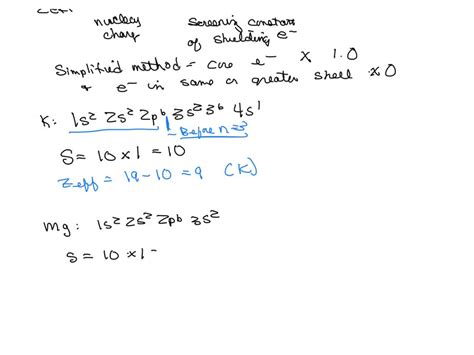 nucleus screening constant
charg of shielding e⁻
Simplified method = core e⁻ × 1.0
& e⁻ in same or greater shell × 0
K: 1s² 2s² 2p⁶ 3s² 3⁶ 4s¹
Before n=3
S = 10 × 1 = 10
Zeff = 19 - 10 = 9 (K)
Mg: 1s² 2s² 2p⁶ 3s²
S = 10 × 1 =